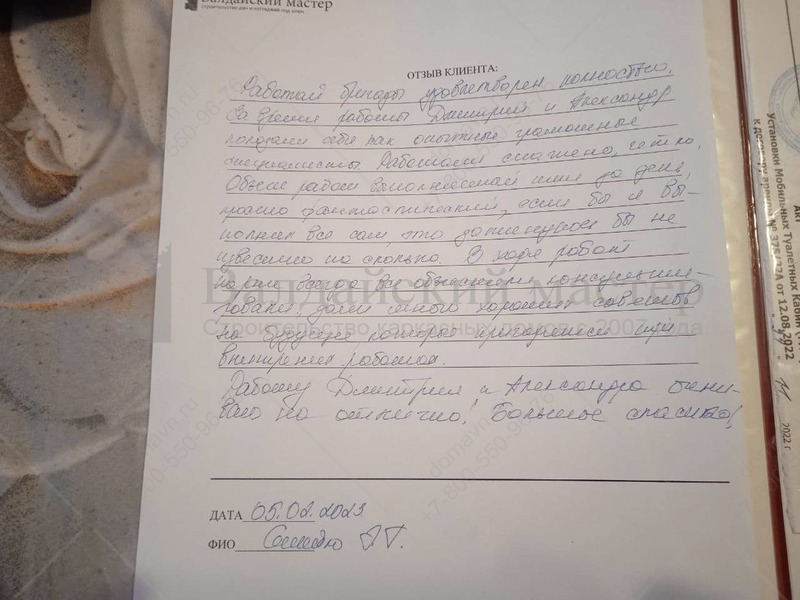 Валдайский мастер
строительство дач и коттеджей под ключ
ОТЗЫВ КЛИЕНТА:
Работой бригады удовлетворен полностью.
За время работы Дмитрий и Александр
показали себя как опытные грамотные
специалисты. Работали слажено, четко.
Объем работ выполняемый ими за день,
просто фантастический, если бы я вы-
полнял все сам, это затянулось бы не
известно на сколько. В ходе работ
парни всегда все объясняли, консультиро-
вали, дали много хороших советов
на будущее которые пригодятся при
внутренних работах.
Работу Дмитрия и Александра оцени-
ваю на отлично! Большое спасибо!
ДАТА 05.02.2023
ФИО А.Г.
Валдайский мастер
Строительство каркасных домов с 2007 года
domavn.ru
+7-800-550-96-76
Акт
Установки Мобильных Туалетных Кабин
к договору аренды № 375/22А от 12.08.2022
2022 г